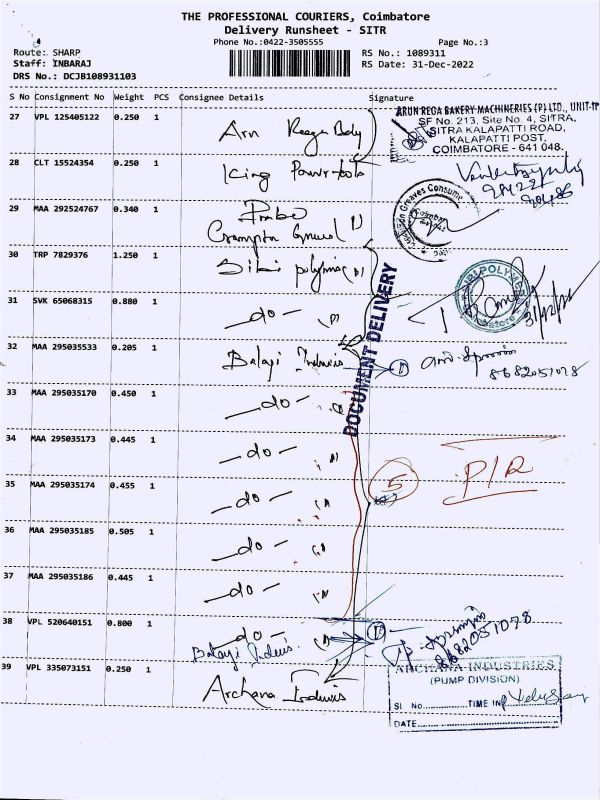 THE PROFESSIONAL COURIERS, Coimbatore
Delivery Runsheet - SITR
Phone No.:0422-3505555 Page No.:3
Route: SHARP RS No.: 1089311
Staff: INBARAJ RS Date: 31-Dec-2022
DRS No.: DCJB108931103
S No Consignment No Weight PCS Consignee Details Signature
27 VPL 125405122 0.250 1 Arn Rega Bdy
ARUN REGA BAKERY MACHINERIES (P) LTD., UNIT-II
SF No. 213, Site No. 4, SITRA,
SITRA KALAPATTI ROAD,
KALAPATTI POST,
COIMBATORE - 641 048.
28 CLT 15524354 0.250 1 King Power tools
29 MAA 292524767 0.340 1
Crompton Greaves
Crompton Greaves Consume
30 TRP 7829376 1.250 1 Sibi polymers
SIBI POLYMER
31 SVK 65068315 0.880 1 -do-
31/12/22
DOCUMENT DELIVERY
32 MAA 295035533 0.205 1 Balaji Induis
8682051078
33 MAA 295035170 0.450 1 -do-
34 MAA 295035173 0.445 1 -do-
P/R
35 MAA 295035174 0.455 1 -do-
5
36 MAA 295035185 0.505 1 -do-
37 MAA 295035186 0.445 1 -do-
38 VPL 520640151 0.800 1 -do-
Balaji Induis
8682051078
39 VPL 335073151 0.250 1 Archana Induis
ARCHANA INDUSTRIES
(PUMP DIVISION)
Sl No. TIME IN
DATE